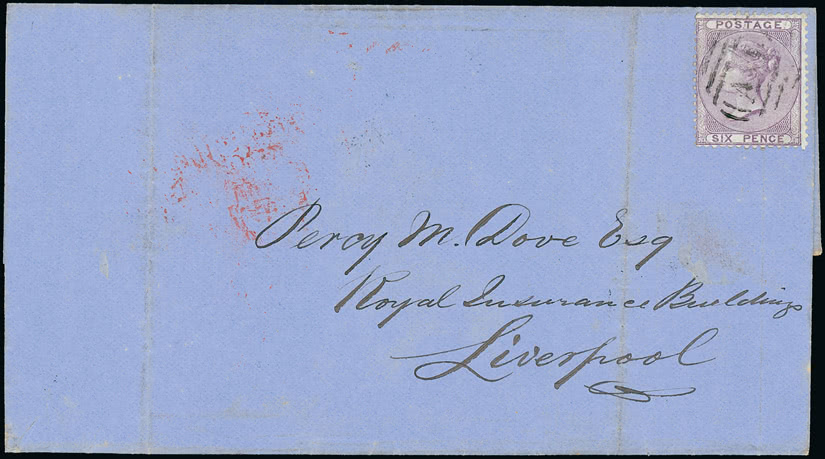 POSTAGE
SIX PENCE
Percy M. Dove Esq
Royal Insurance Buildings
Liverpool